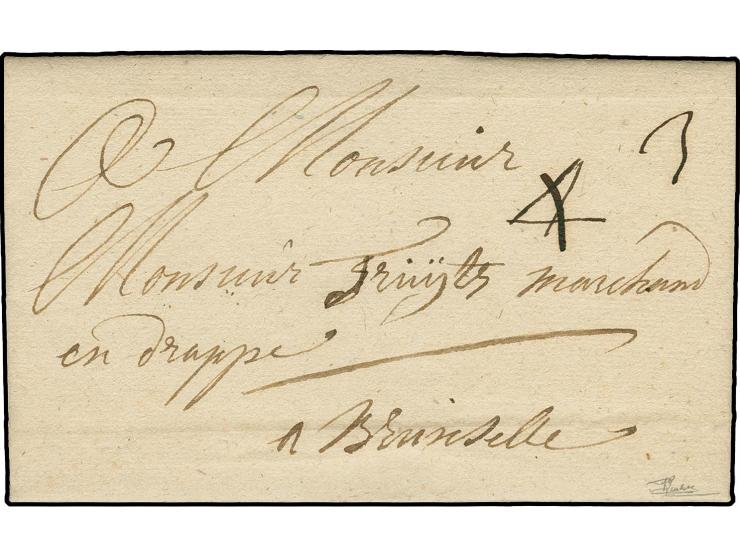 A Monsieur
3
4
Monsieur Fruÿts marchand
en drappe
a Bruxselle